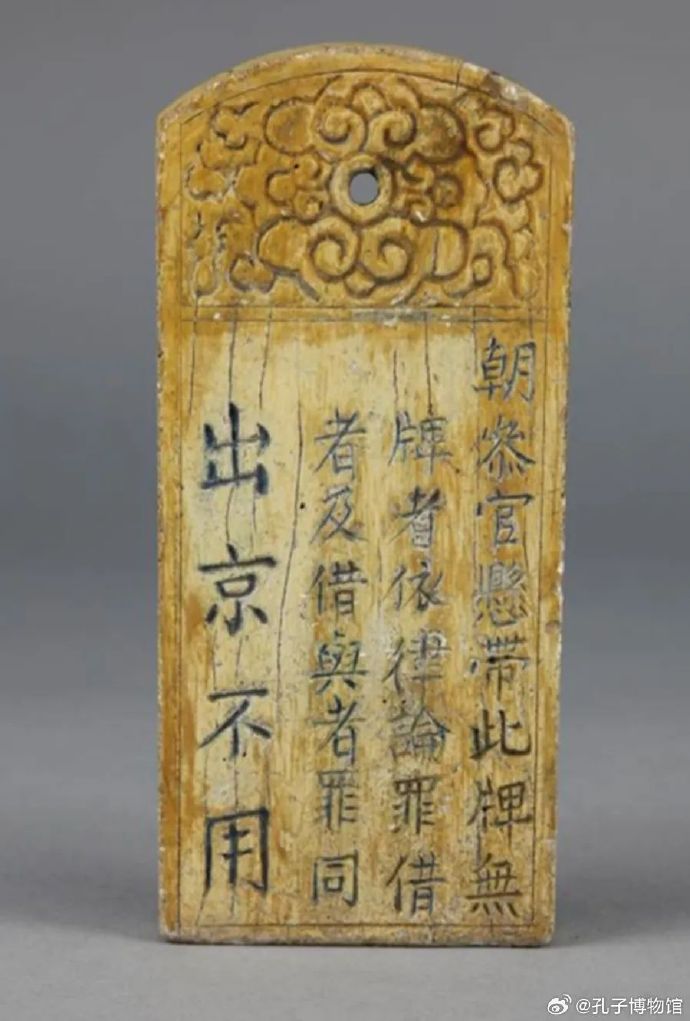 朝叅官懸帶此牌無
牌者依律論罪借
者及借與者罪同
出京不用
@孔子博物馆